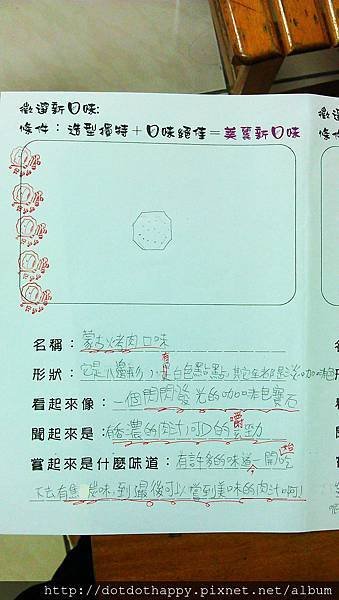 徵選新口味:
條件：造型獨特＋口味絕佳＝美麗新口味
名稱：蒙古烤肉口味
形狀：它是八邊形,小有白色點點,其它全都是淡咖啡色
看起來像：一個閃閃發光的咖啡色寶石
聞起來是：有香濃的肉汁,可口的嚼勁
嘗起來是什麼味道：有許多的味道一開始吃
下去有焦炭味,到最後可以嘗到美味的肉汁啊!
徵選
條件
名
形
看
聞
嘗
http://dotdothappy.pixnet.net/album